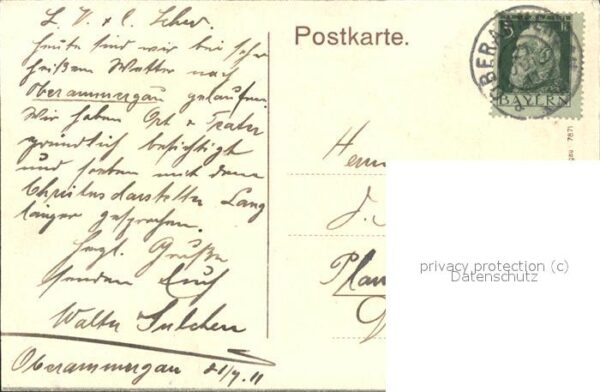 L. V. & l. Schw.
Heute sind wir bei sehr
heißem Wetter nach
Oberammergau gelaufen.
Wir haben Ort & Teater
gründlich besichtigt
und soeben mit dem
Christusdarsteller Lang
länger gesprochen.
Hrzl. Grüße
senden Euch
Walter
Oberammergau 21/7.11
Postkarte.
5
BAYERN
7871
privacy protection (c)
Datenschutz